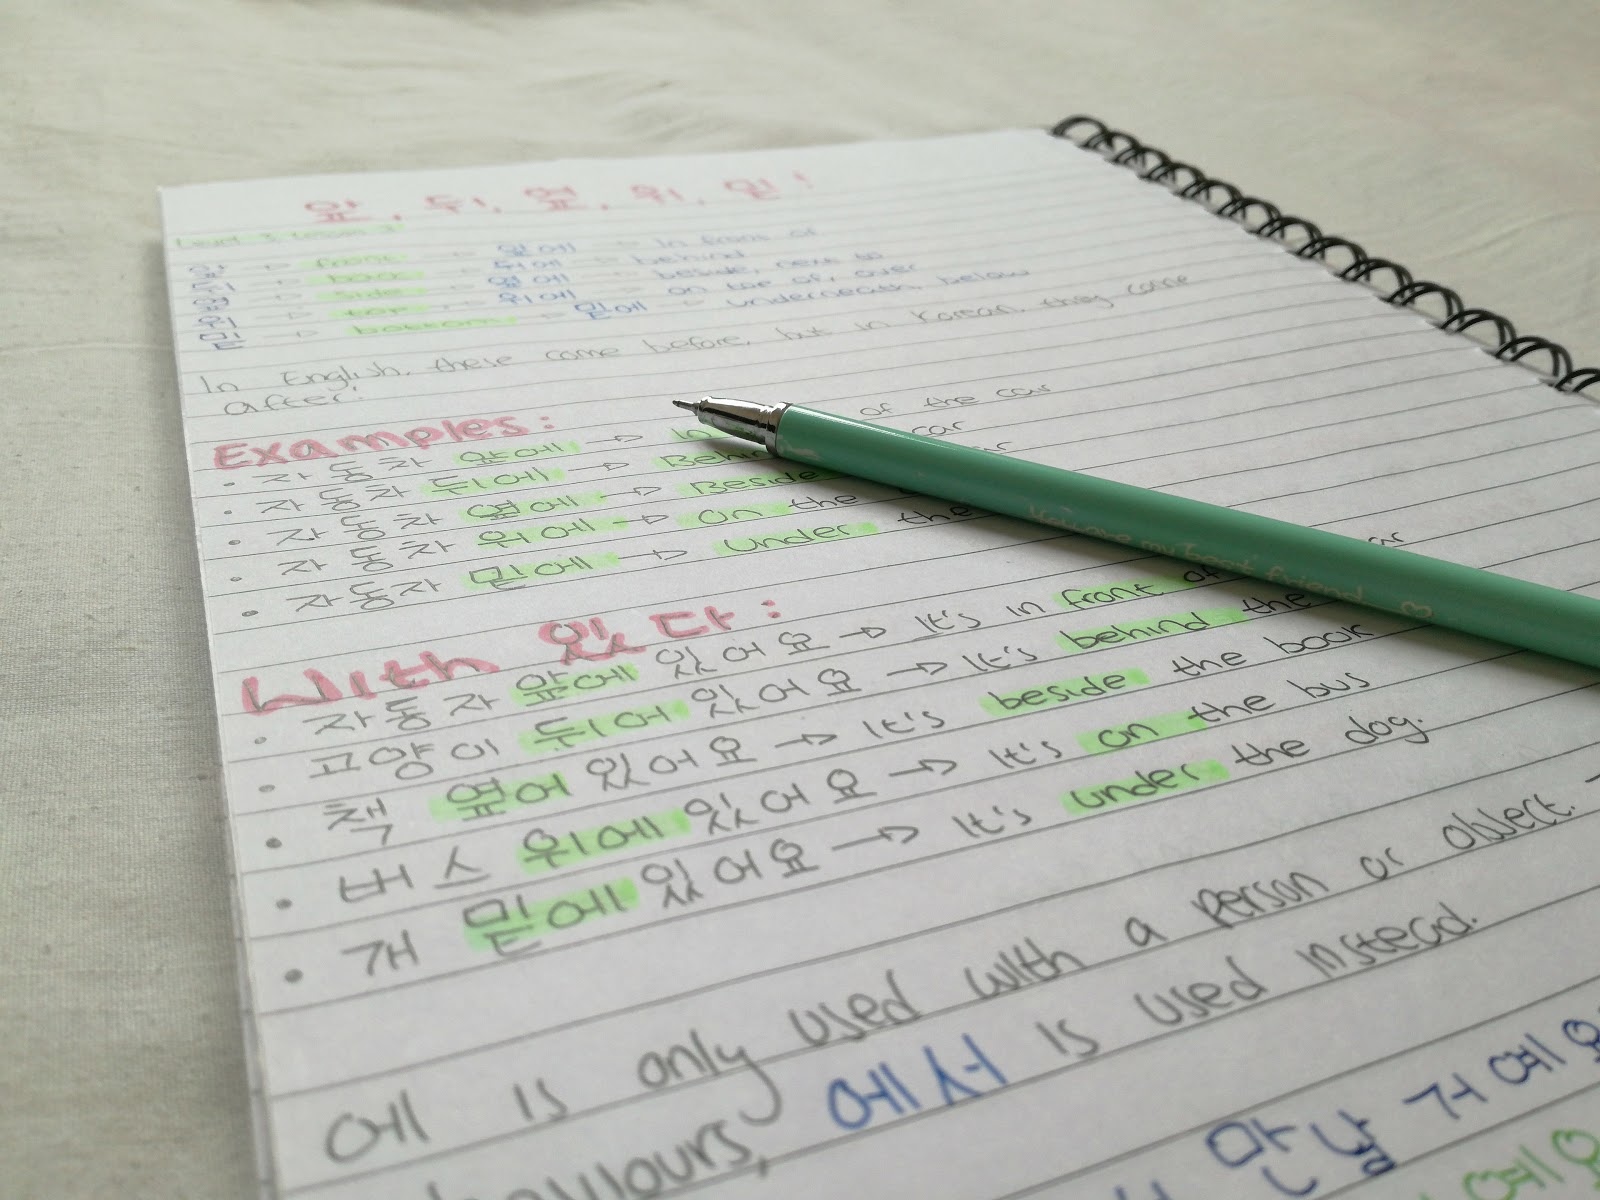 앞, 뒤, 옆, 위, 밑!
Level 3 Lesson 3
앞 → front - 앞에 - in front of
뒤 → back - 뒤에 - behind
옆 → side - 옆에 - beside, next to
위 → top - 위에 - on top of, over
밑 → bottom - 밑에 - underneath, below
In English, these come before, but in Korean, they come
after.
Examples:
• 자동차 앞에 → In of the car
• 자동차 뒤에 → Behind car
• 자동차 옆에 → Beside
• 자동차 위에 → On the
• 자동자 밑에 → Under the
With 있다:
• 자동자 앞에 있어요 → It's in front of
• 고양이 뒤어 있어요 → It's behind the
• 책 옆어 있어요 → It's beside the book
• 버스 위에 있어요 → It's on the bus
• 개 밑에 있어요 → It's under the dog.
에 is only used with a person or object.
에서 is used instead.
만날 거예요
예요
You are my best friend